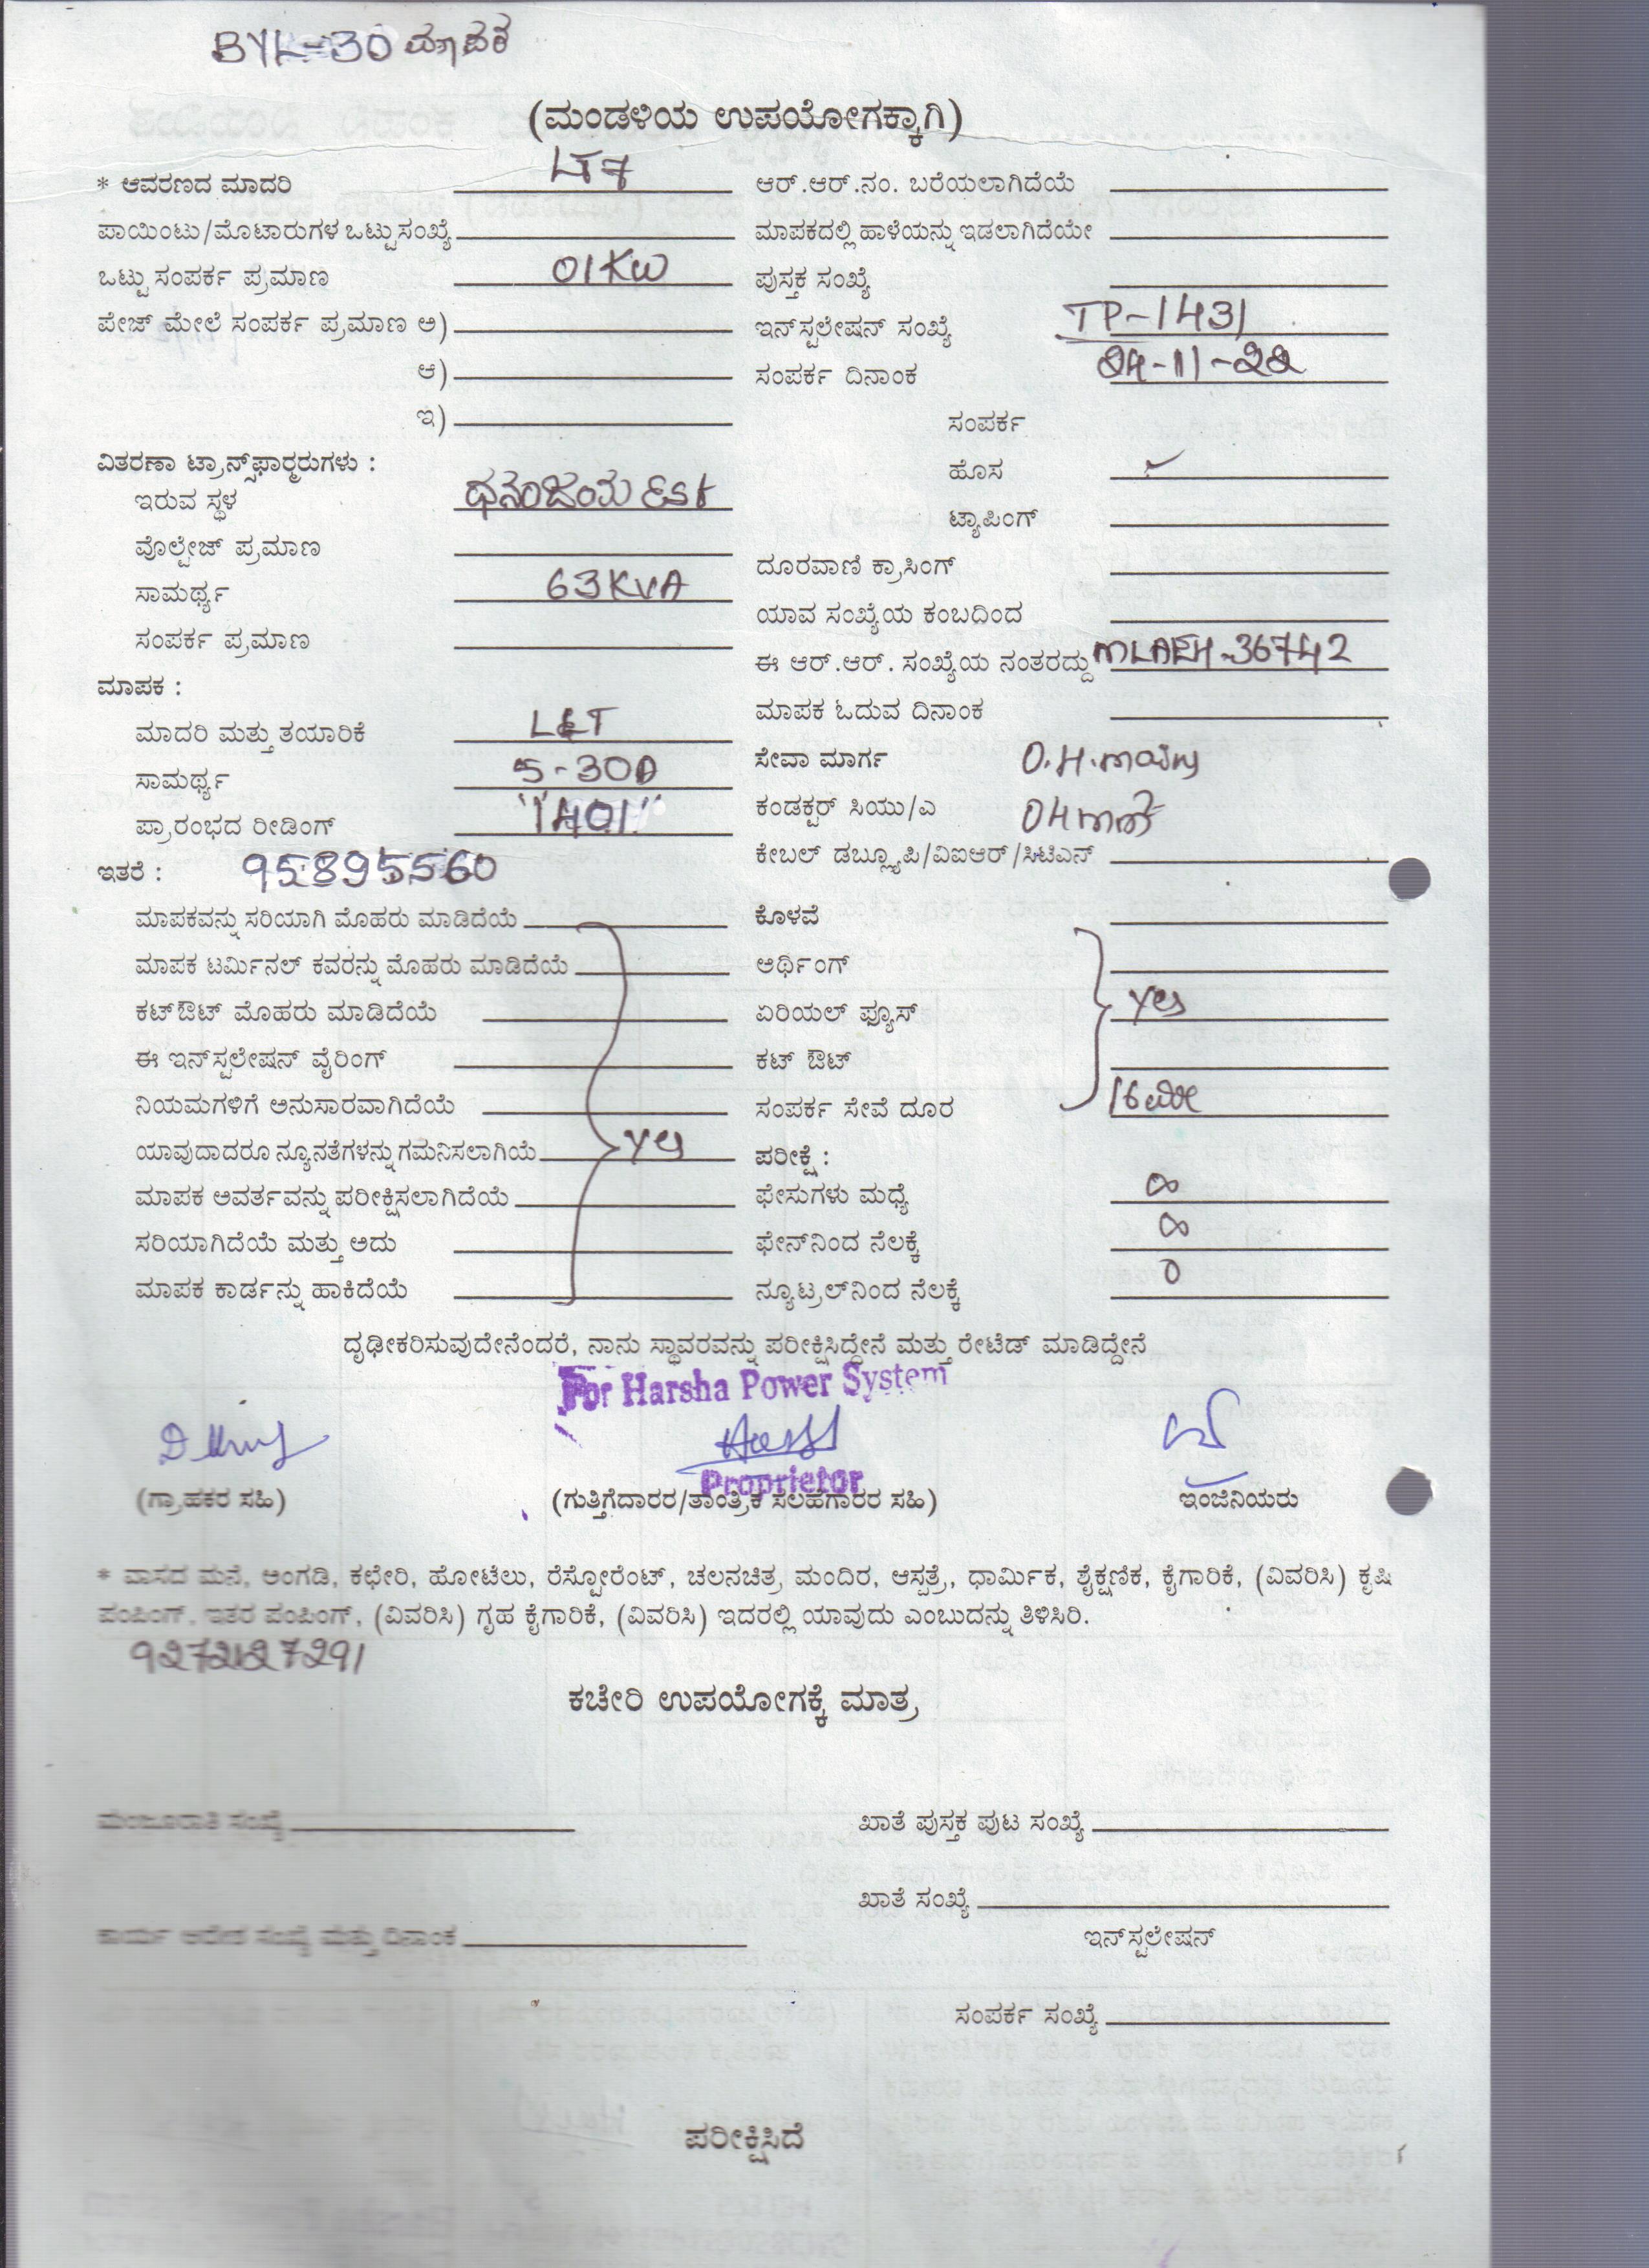 BYL-30 ಮಾಪಕ
(ಮಂಡಳಿಯ ಉಪಯೋಗಕ್ಕಾಗಿ)
* ಆವರಣದ ಮಾದರಿ LT7
ಪಾಯಿಂಟು/ಮೊಟಾರುಗಳ ಒಟ್ಟುಸಂಖ್ಯೆ
ಒಟ್ಟು ಸಂಪರ್ಕ ಪ್ರಮಾಣ 01KW
ಪೇಜ್ ಮೇಲೆ ಸಂಪರ್ಕ ಪ್ರಮಾಣ ಅ)
ಆ)
ಇ)
ವಿತರಣಾ ಟ್ರಾನ್ಸ್‌ಫಾರ್‍ಮರುಗಳು :
ಇರುವ ಸ್ಥಳ ಧನಂಜಯ Est
ವೊಲ್ಟೇಜ್ ಪ್ರಮಾಣ
ಸಾಮರ್ಥ್ಯ 63KVA
ಸಂಪರ್ಕ ಪ್ರಮಾಣ
ಮಾಪಕ :
ಮಾದರಿ ಮತ್ತು ತಯಾರಿಕೆ L&T
ಸಾಮರ್ಥ್ಯ 5-30A
ಪ್ರಾರಂಭದ ರೀಡಿಂಗ್ "1401"
ಇತರೆ : 95895560
ಮಾಪಕವನ್ನು ಸರಿಯಾಗಿ ಮೊಹರು ಮಾಡಿದೆಯೆ
ಮಾಪಕ ಟರ್ಮಿನಲ್ ಕವರನ್ನು ಮೊಹರು ಮಾಡಿದೆಯೆ
ಕಟ್‌ಔಟ್ ಮೊಹರು ಮಾಡಿದೆಯೆ
ಈ ಇನ್‌ಸ್ಟಲೇಷನ್ ವೈರಿಂಗ್
ನಿಯಮಗಳಿಗೆ ಅನುಸಾರವಾಗಿದೆಯೆ
ಯಾವುದಾದರೂ ನ್ಯೂನತೆಗಳನ್ನು ಗಮನಿಸಲಾಗಿಯೆ yes
ಮಾಪಕ ಅವರ್ತವನ್ನು ಪರೀಕ್ಷಿಸಲಾಗಿದೆಯೆ
ಸರಿಯಾಗಿದೆಯೆ ಮತ್ತು ಅದು
ಮಾಪಕ ಕಾರ್ಡನ್ನು ಹಾಕಿದೆಯೆ
ಆರ್.ಆರ್.ನಂ. ಬರೆಯಲಾಗಿದೆಯೆ
ಮಾಪಕದಲ್ಲಿ ಹಾಳೆಯನ್ನು ಇಡಲಾಗಿದೆಯೇ
ಪುಸ್ತಕ ಸಂಖ್ಯೆ
ಇನ್‌ಸ್ಟಲೇಷನ್ ಸಂಖ್ಯೆ TP-1431
ಸಂಪರ್ಕ ದಿನಾಂಕ 24-11-22
ಸಂಪರ್ಕ
ಹೊಸ ✓
ಟ್ಯಾಪಿಂಗ್
ದೂರವಾಣಿ ಕ್ರಾಸಿಂಗ್
ಯಾವ ಸಂಖ್ಯೆಯ ಕಂಬದಿಂದ
ಈ ಆರ್.ಆರ್. ಸಂಖ್ಯೆಯ ನಂತರದ್ದು MLAEH-36742
ಮಾಪಕ ಓದುವ ದಿನಾಂಕ
ಸೇವಾ ಮಾರ್ಗ O.H.
ಕಂಡಕ್ಟರ್ ಸಿಯು/ಎ OH
ಕೇಬಲ್ ಡಬ್ಲ್ಯೂಪಿ/ವಿಐಆರ್/ಸಿಟಿಎನ್
ಕೊಳವೆ
ಅರ್ಥಿಂಗ್
ಏರಿಯಲ್ ಫ್ಯೂಸ್ yes
ಕಟ್ ಔಟ್
ಸಂಪರ್ಕ ಸೇವೆ ದೂರ 16ಮೀ
ಪರೀಕ್ಷೆ :
ಫೇಸುಗಳು ಮಧ್ಯೆ ∞
ಫೇನ್‌ನಿಂದ ನೆಲಕ್ಕೆ ∞
ನ್ಯೂಟ್ರಲ್‌ನಿಂದ ನೆಲಕ್ಕೆ 0
ದೃಢೀಕರಿಸುವುದೇನೆಂದರೆ, ನಾನು ಸ್ಥಾವರವನ್ನು ಪರೀಕ್ಷಿಸಿದ್ದೇನೆ ಮತ್ತು ರೇಟೆಡ್ ಮಾಡಿದ್ದೇನೆ
For Harsha Power System
Proprietor
(ಗ್ರಾಹಕರ ಸಹಿ) (ಗುತ್ತಿಗೆದಾರರ/ತಾಂತ್ರಿಕ ಸಲಹೆಗಾರರ ಸಹಿ) ಇಂಜಿನಿಯರು
* ವಾಸದ ಮನೆ, ಅಂಗಡಿ, ಕಛೇರಿ, ಹೋಟೆಲು, ರೆಸ್ಟೋರೆಂಟ್, ಚಲನಚಿತ್ರ ಮಂದಿರ, ಆಸ್ಪತ್ರೆ, ಧಾರ್ಮಿಕ, ಶೈಕ್ಷಣಿಕ, ಕೈಗಾರಿಕೆ, (ವಿವರಿಸಿ) ಕೃಷಿ
ಪಂಪಿಂಗ್, ಇತರ ಪಂಪಿಂಗ್, (ವಿವರಿಸಿ) ಗೃಹ ಕೈಗಾರಿಕೆ, (ವಿವರಿಸಿ) ಇದರಲ್ಲಿ ಯಾವುದು ಎಂಬುದನ್ನು ತಿಳಿಸಿರಿ.
ಕಚೇರಿ ಉಪಯೋಗಕ್ಕೆ ಮಾತ್ರ
ಮಂಜೂರಾತಿ ಸಂಖ್ಯೆ ಖಾತೆ ಪುಸ್ತಕ ಪುಟ ಸಂಖ್ಯೆ
ಖಾತೆ ಸಂಖ್ಯೆ
ಕಾರ್ಯ ಆದೇಶ ಸಂಖ್ಯೆ ಮತ್ತು ದಿನಾಂಕ ಇನ್‌ಸ್ಟಲೇಷನ್
ಸಂಪರ್ಕ ಸಂಖ್ಯೆ
ಪರೀಕ್ಷಿಸಿದೆ